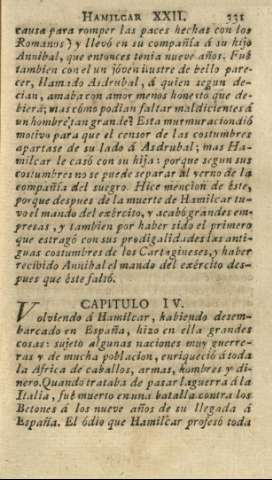 HAMILCAR XXII. 331
causa para romper las paces hechas con los
Romanos) y llevó en su compañía á su hijo
Annibal, que entonces tenia nueve años. Fué
tambien con el un jóven ilustre de bello pare-
cer, llamado Asdrubal, á quien segun de-
cian, amaba con amor menos honesto que de-
biera; mas cómo podian faltar maldicientes á
un hombre tan grande? Esta murmuracion dió
motivo para que el censor de las costumbres
apartase de su lado á Asdrubal; mas Ha-
milcar le casó con su hija: porque segun sus
costumbres no se puede separar al yerno de la
compañía del suegro. Hice mencion de éste,
porque despues de la muerte de Hamilcar tu-
vo el mando del exército, y acabó grandes em-
presas, y tambien por haber sido el primero
que estragó con sus prodigalidades las anti-
guas costumbres de los Cartagineses, y haber
recibido Annibal el mando del exército des-
pues que éste faltó.
CAPITULO IV.
Volviendo á Hamilcar, habiendo desem-
barcado en España, hizo en ella grandes
cosas: sujetó algunas naciones muy guerre-
ras y de mucha poblacion, enriqueció á toda
la Africa de caballos, armas, hombres y di-
nero. Quando trataba de pasar la guerra á la
Italia, fué muerto en una batalla contra los
Betones á los nueve años de su llegada á
España. El ódio que Hamilcar profesó toda